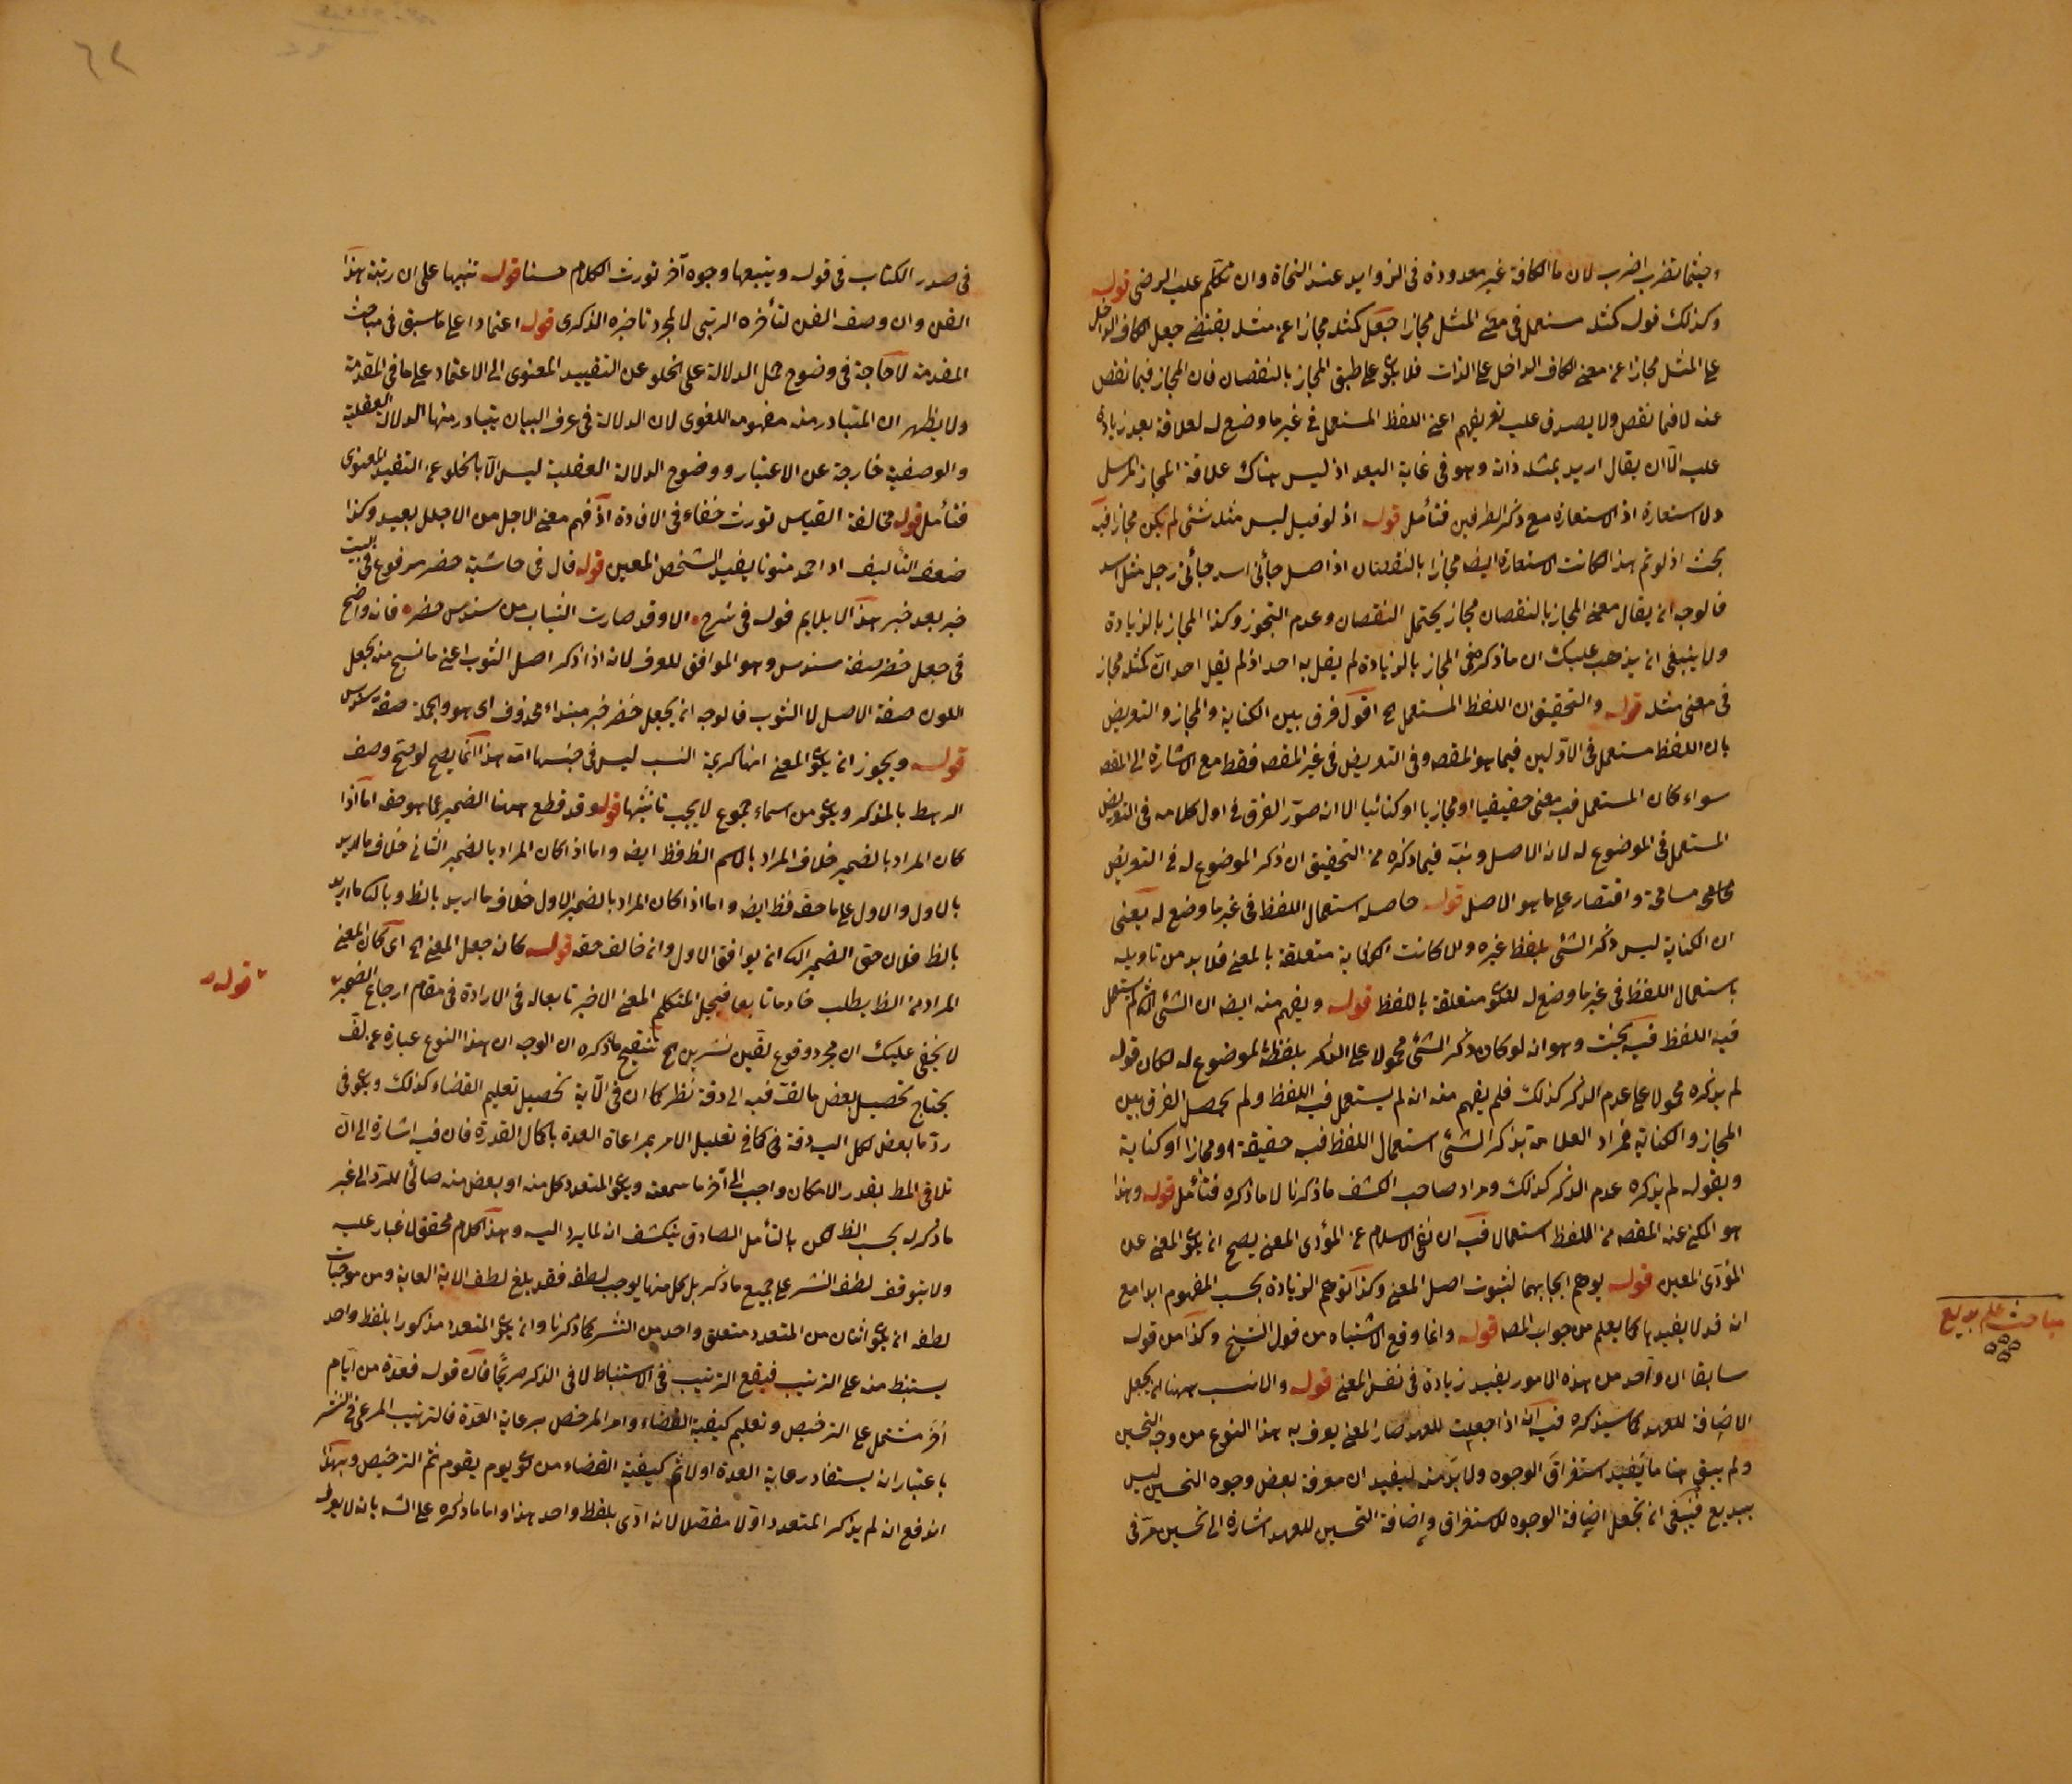 وحيثما تضرب اضرب لان ما الكافة غير معدودة في الزوايد عند النحاة وان تكلم عليه الرضى قوله
وكذلك قوله كمثله مستعمل في معنى المثل مجازا جعل كمثله مجازا عن مثله يقتضى جعل الكاف الداخل
على المثل مجازا عن معنى الكاف الداخل على الذات فلا يكون على طبق المجاز بالنقصان فان المجاز فيما نقص
عنه لا فيما نقص ولا يصدق عليه تعريفهم اعنى اللفظ المستعمل في غير ما وضع له لعلاقة بعد زيادة
عليه الا ان يقال اريد بمثله ذاته وهو في غاية البعد اذ ليس هناك علاقة المجاز المرسل
ولا استعارة اذ لا استعارة مع ذكر الطرفين فتأمل قوله اذ لو قيل ليس مثله شئ لم يكن مجازا فيه
بحث اذ لو تم هذا لكانت الاستعارة ايضا مجازا بالنقصان اذ اصل جائنى اسد جائنى رجل مثل اسد
فالوجه ان يقال معنى المجاز بالنقصان مجاز يحتمل النقصان وعدم التجوز وكذا المجاز بالزيادة
ولا ينبغى ان يذهب عليك ان ما ذكره في المجاز بالزيادة لم يقل به احد اذ لم يقل احد ان كمثله مجاز
في معنى مثله قوله والتحقيق ان اللفظ المستعمل الخ اقول فرق بين الكناية والمجاز والتعريض
بان اللفظ مستعمل في الاولين فيما هو المقصـ وفي التعريض في غير المقصـ فقط مع الاشارة الى المقصـ
سواء كان المستعمل فيه معنى حقيقيا او مجازيا او كنائيا الا انه صور الفرق في اول كلامه في التعريض
المستعمل في الموضوع له لانه الاصل ونبه فيما ذكره من التحقيق ان ذكر الموضوع له في التعريض
مسامحة واقتصار على ما هو الاصل قوله حاصله استعمال اللفظ في غير ما وضع له يعنى
ان الكناية ليس ذكر الشئ بلفظ غيره والا لكانت الكناية متعلقة بالمعنى فلا بد من تاويله
باستعمال اللفظ في غير ما وضع له ليكون متعلقة باللفظ قوله ويفهم منه ايضا ان الشئ الذى لم يستعمل
فيه اللفظ فيه بحث وهو انه لو كان ذكر الشئ محمولا على الذكر بلفظه الموضوع له لكان قوله
لم يذكره محمولا على عدم الذكر كذلك فلم يفهم منه انه لم يستعمل فيه اللفظ ولم يحصل الفرق بين
المجاز والكناية فمراد العلامة بذكر الشئ استعمال اللفظ فيه حقيقة او مجازا او كناية
وبقوله لم يذكره عدم الذكر كذلك ومراد صاحب الكشف ما ذكرنا لا ما ذكره فتأمل قوله وهذا
هو المكنى عنه المقصـ من اللفظ استعمالا فيه ان نفى الاسلام عن المؤذى المعنى يصح ان يكون المعنى عن
المؤذى المعين قوله يوهم ايجابهما لثبوت اصل المعنى وكذا توهم الزيادة بحسب المفهوم ابدا مع
انه قد لا يفيدها كما يعلم من جواب المصـ قوله وانما وقع الاشتباه من قول الشيخ وكذا من قوله
سابقا ان واحد من هذه الامور يفيد زيادة في نفس المعنى قوله والانسب ههنا ان يجعل
الاضافة للعهد كما سيذكره فيه انه اذا جعلت للعهد صار المعنى يعرف به هذا النوع من وجه التحسين
ولم يبق هنا ما يفيد استغراق الوجوه ولا بد منه ليفيد ان معرفة بعض وجوه التحسين ليس
ببديع فينبغى ان تجعل اضافة الوجوه للاستغراق واضافة التحسين للعهد اشارة الى تحسين مر في
مباحث علم بديع
في صدر الكتاب في قوله ويتبعها وجوه آخر تورث الكلام حسنا قوله تنبيها على ان رتبة هذا
الفن وان وصف الفن لتأخره الرتبى لا لمجرد تاخيره الذكرى قوله اعتمادا على ما سبق في مباحث
المقدمة لا حاجة في وضوح حمل الدلالة على الخلو عن التقييد المعنوى الى الاعتماد على ما في المقدمة
ولا يظهر ان المتبادر منه مفهومه اللغوى لان الدلالة في عرف البيان يتبادر منها الدلالة العقلية
والوضعية خارجة عن الاعتبار ووضوح الدلالة العقلية ليس الا بالخلو عن التقييد المعنوى
فتأمل قوله مخالفة القياس تورث خفاء في الافادة اذ فهم معنى الاجل من الاجلل بعيد وكذا
ضعف التأليف اذ احمد منونا يفيد الشخص المعين قوله قال في حاشية خضر مرفوع في البيت
خبر بعد خبر هذا لا يلايم قوله في شرح الا وقد صارت الثياب من سندس خضر فانه واضح
في جعل خضر صفة سندس وهو الموافق للعرف لانه اذا ذكر اصل الثوب اعنى ما نسج منه يجعل
اللون صفة الاصل لا الثوب فالوجه ان يجعل خضر خبر مبتداء محذوف اى هو والجملة صفة سندس
قوله ويجوز ان يكون المعنى انها كريمة النسب ليس في جنسها امة هذا انما يصح لو صح وصف
الرهط بالمذكر ويكون من اسماء جموع لا يجب تانيثها قوله وقد قطع ههنا الضمير عما هو حقه اما اذا
كان المراد بالضمير خلاف المراد بالاسم الظـ فظـ ايضا واما اذا كان المراد بالضمير الثانى خلاف ما اريد
بالاول والاول على ما حقه فظـ ايضا واما اذا كان المراد بالضمير الاول خلاف ما اريد بالظـ وبالثـ ما اريد
بالظـ فلان حق الضمير الثـ ان يوافق الاول وان خالف حقه قوله كان جعل المعنى الخ اى كان المعنى
المراد من الظـ يطلب خادما تابعا فيجعل المتكلم المعنى الاخير تابعا له في الارادة في مقام ارجاع الضمير
قوله
لا يخفى عليك ان مجرد وقوع لفين نشرين الخ تنقيح ما ذكره ان الوجه ان هذا النوع عبارة عن لف
يحتاج تحصيل بعض ما لف فيه الى دقة نظر كما ان في الآية تحصيل تعليم القضاء كذلك ويكون في
رد ما بعض لكل اليه دقة في كما في تعليل الامر بمراعاة العدة باكمال القدرة فان فيه اشارة الى ان
تلافى المطـ بقدر الامكان واجب الى آخر ما سمعته ويكون المتعدد كل منه او بعض منه صالحا للرد الى غير
ما ذكر له بحسب الظـ لكن بالتأمل الصادق ينكشف انه لما يرد اليه وهذا كلام محقق لا غبار عليه
ولا يتوقف لطف النشر على جميع ما ذكر بل كل منها يوجب لطفه فقد بلغ لطف الاية الغاية ومن موجبات
لطفه ان يكون اثنان من المتعدد متعلق واحد من النشر كما ذكرنا وان يكون المتعدد مذكورا بلفظ واحد
يستنبط منه على الترتيب فيقع الترتيب في الاستنباط لا في الذكر صريحا فان قوله فعدة من ايام
آخر مشتمل على الترخيص وتعليم كيفية القضاء وامر المرخص برعاية العدة فالترتيب المرعى في النشر
باعتبار ان يستفاد رعاية العدة اولا ثم كيفية القضاء من يوم يقوم ثم الترخيص وبهذا
اندفع انه لم يذكر المتعدد اولا مفصلا لانه ادى بلفظ واحد هذا واما ما ذكره على الشـ بانه لا يعرف